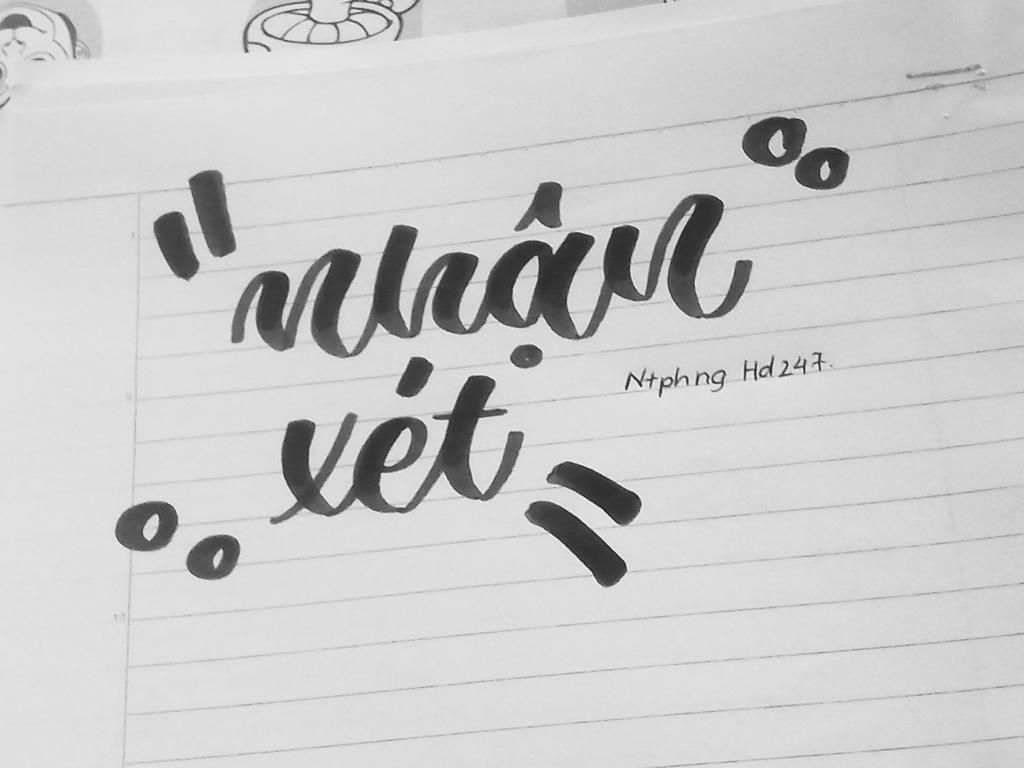 nhận
xét
Ntphng Hd247.
5
10